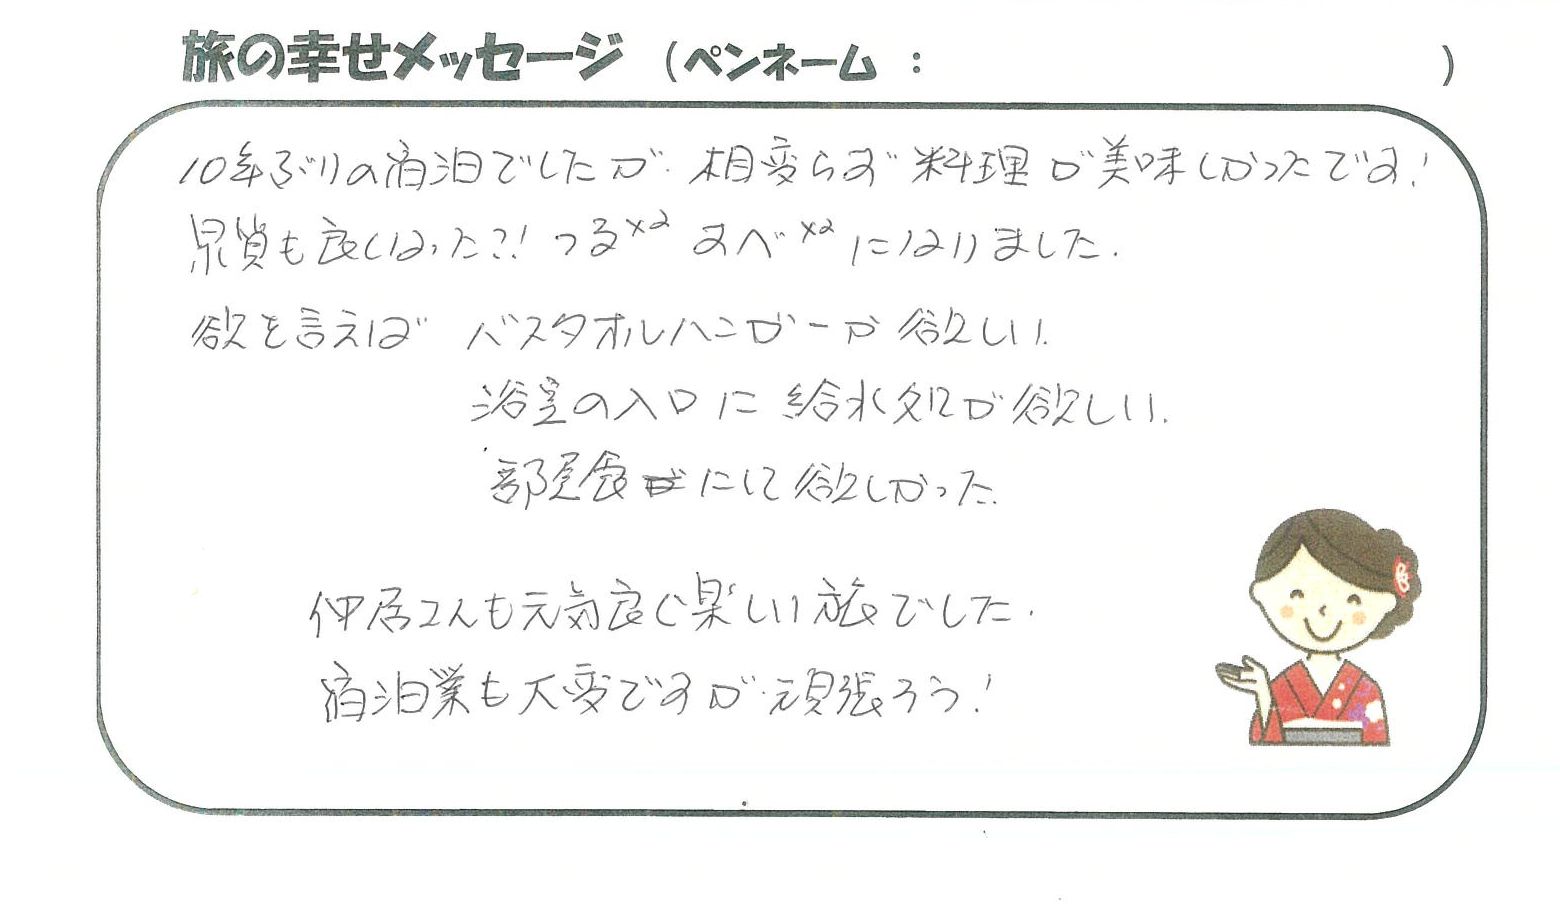 旅の幸せメッセージ (ペンネーム : )
10年ぶりの宿泊でしたが、相変らず料理が美味しかったです!
泉質も良くなった?! つる×2 すべ×2 になりました.
欲を言えば バスタオルハンガーが欲しい.
浴室の入口に給水処が欲しい.
部屋食にして欲しかった.
仲居さんも元気良く楽しい旅でした.
宿泊業も大変ですが、頑張ろう!